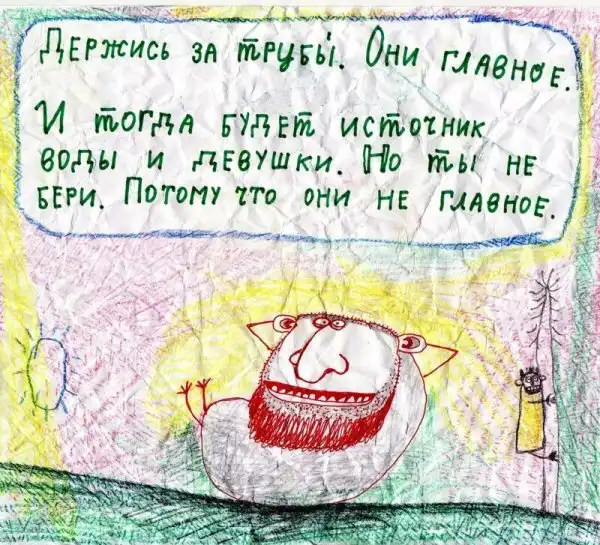 Держись за трубы. Они главное.
И тогда будет источник
воды и девушки. Но ты не
бери. Потому что они не главное.